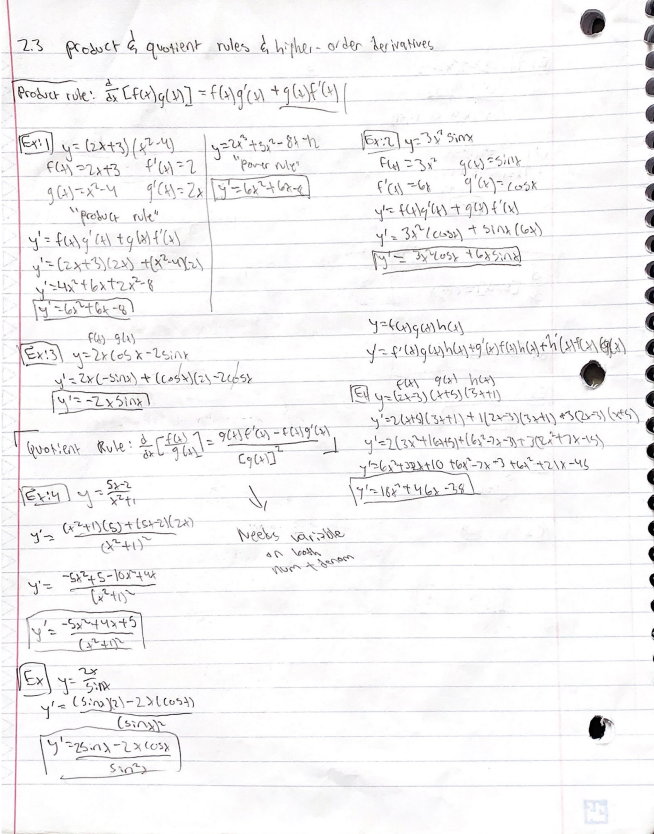 2.3 product & quotient rules & higher-order derivatives
Product rule: d/dx [f(x)g(x)] = f(x)g'(x) + g(x)f'(x)
Ex:1 y=(2x+3)(x²-4)
f(x)=2x+3 f'(x)=2
g(x)=x²-4 g'(x)=2x
"product rule"
y'=f(x)g'(x)+g(x)f'(x)
y'=(2x+3)(2x)+(x²-4)(2)
y'=4x²+6x+2x²-8
y'=6x²+6x-8
y=2x³+3x²-8x-12
"Power rule"
y'=6x²+6x-8
Ex:2 y=3x² sinx
f(x)=3x² g(x)=sinx
f'(x)=6x g'(x)=cosx
y'=f(x)g'(x)+g(x)f'(x)
y'=3x²(cosx)+sinx(6x)
y'=3x²cosx+6xsinx
f(x) g(x)
Ex:3 y=2xcosx-2sinx
y'=2x(-sinx)+(cosx)(2)-2cosx
y'=-2xsinx
y=f(x)g(x)h(x)
y'=f'(x)g(x)h(x)+g'(x)f(x)h(x)+h'(x)f(x)g(x)
f(x) g(x) h(x)
Ex y=(2x-3)(x+5)(3x+1)
y'=2(x+5)(3x+1)+1(2x-3)(3x+1)+3(2x-3)(x+5)
y'=2(3x²+16x+5)+(6x²-7x-3)+3(2x²+7x-15)
y'=6x²+32x+10+6x²-7x-3+6x²+21x-45
y'=18x²+46x-38
Quotient Rule: d/dx [f(x)/g(x)] = g(x)f'(x)-f(x)g'(x)/[g(x)]²
Needs variable
on both
num + denom
Ex:4 y=5x-2/x²+1
y'=(x²+1)(5)+(5x-2)(2x)/(x²+1)²
y'=-5x²+5-10x²+4x/(x²+1)²
y'=-5x²+4x+5/(x²+1)²
Ex y=2x/sinx
y'=(sinx)(2)-2x(cosx)/(sinx)²
y'=2sinx-2xcosx/sin²x